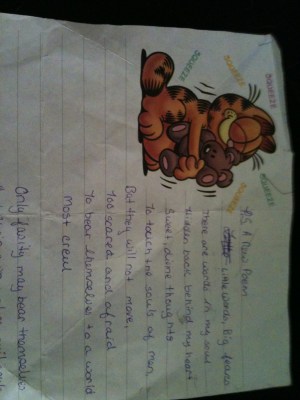 SQUEEZE
SQUEEZE
SQUEEZE
SQUEEZE
SQUEEZE
A New Poem
Little words, Big
There are words in my soul
Hidden back behind my heart
Sweet, divine thoughts
To touch the souls of men
But they will not move,
Too scared and afraid
To bear themselves to a world
Most cruel
Only faintly may bear themselves